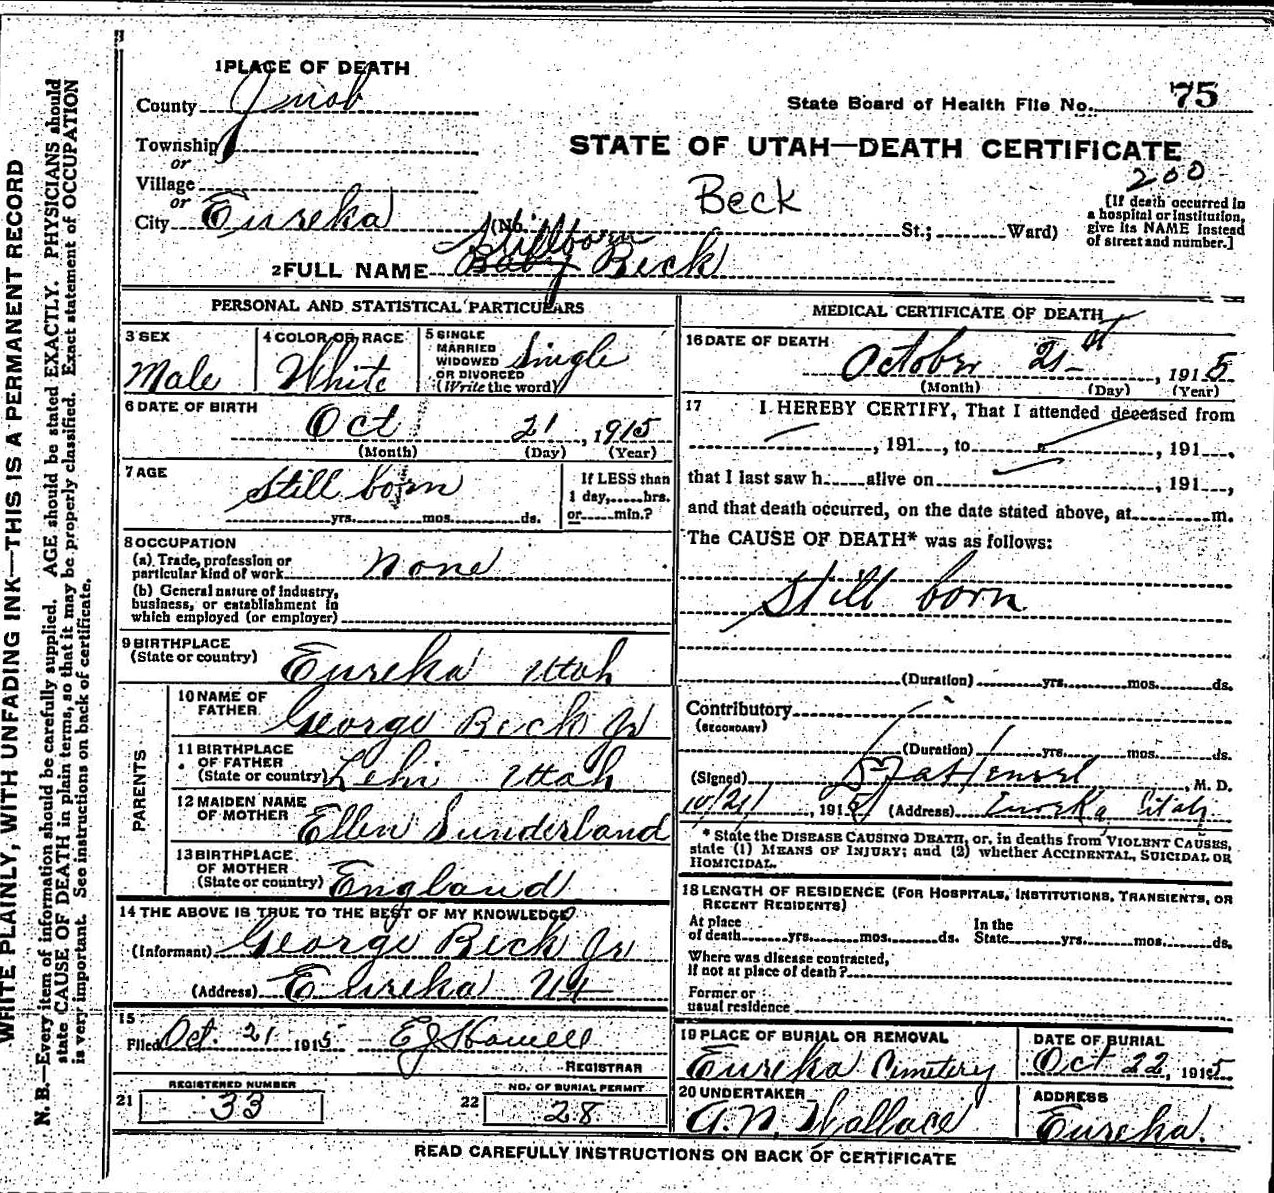 WRITE PLAINLY, WITH UNFADING INK—THIS IS A PERMANENT RECORD
N. B.—Every item of information should be carefully supplied. AGE should be stated EXACTLY. PHYSICIANS should
state CAUSE OF DEATH in plain terms, so that it may be properly classified. Exact statement of OCCUPATION
is very important. See instructions on back of certificate.
1 PLACE OF DEATH
County Juab
State Board of Health File No. 75
Township
or
STATE OF UTAH—DEATH CERTIFICATE
200
Village
or
Beck
City Eureka (No. St.; Ward)
[If death occurred in
a hospital or institution,
give its NAME instead
of street and number.]
Stillborn
2 FULL NAME Baby Beck
PERSONAL AND STATISTICAL PARTICULARS
3 SEX
Male
4 COLOR OR RACE
White
5 SINGLE
MARRIED
WIDOWED
OR DIVORCED
(Write the word)
Single
6 DATE OF BIRTH
Oct 21, 1915
(Month) (Day) (Year)
7 AGE
Still born
yrs. mos. ds.
If LESS than
1 day, hrs.
or min.?
8 OCCUPATION
(a) Trade, profession or
particular kind of work None
(b) General nature of industry,
business, or establishment in
which employed (or employer)
9 BIRTHPLACE
(State or country) Eureka Utah
PARENTS
10 NAME OF
FATHER George Beck Jr
11 BIRTHPLACE
OF FATHER
(State or country) Lehi Utah
12 MAIDEN NAME
OF MOTHER Ellen Sunderland
13 BIRTHPLACE
OF MOTHER
(State or country) England
14 THE ABOVE IS TRUE TO THE BEST OF MY KNOWLEDGE
(Informant) George Beck Jr
(Address) Eureka Ut
15
Filed Oct. 21 1915 E J Howell
REGISTRAR
REGISTERED NUMBER
21 33
NO. OF BURIAL PERMIT
22 28
MEDICAL CERTIFICATE OF DEATH
16 DATE OF DEATH
October 21 st, 1915
(Month) (Day) (Year)
17 I HEREBY CERTIFY, That I attended deceased from
, 191 , to , 191 ,
that I last saw h alive on , 191 ,
and that death occurred, on the date stated above, at m.
The CAUSE OF DEATH* was as follows:
Still born
(Duration) yrs. mos. ds.
Contributory
(SECONDARY)
(Duration) yrs. mos. ds.
(Signed) , M. D.
10/21, 1915 (Address) Eureka, Utah
* State the DISEASE CAUSING DEATH, or, in deaths from VIOLENT CAUSES,
state (1) MEANS OF INJURY; and (2) whether ACCIDENTAL, SUICIDAL OR
HOMICIDAL.
18 LENGTH OF RESIDENCE (FOR HOSPITALS, INSTITUTIONS, TRANSIENTS, OR
RECENT RESIDENTS)
At place
of death yrs. mos. ds.
In the
State yrs. mos. ds.
Where was disease contracted,
if not at place of death?
Former or
usual residence
19 PLACE OF BURIAL OR REMOVAL
Eureka Cemetery
DATE OF BURIAL
Oct 22, 1915
20 UNDERTAKER
A. N. Wallace
ADDRESS
Eureka.
READ CAREFULLY INSTRUCTIONS ON BACK OF CERTIFICATE